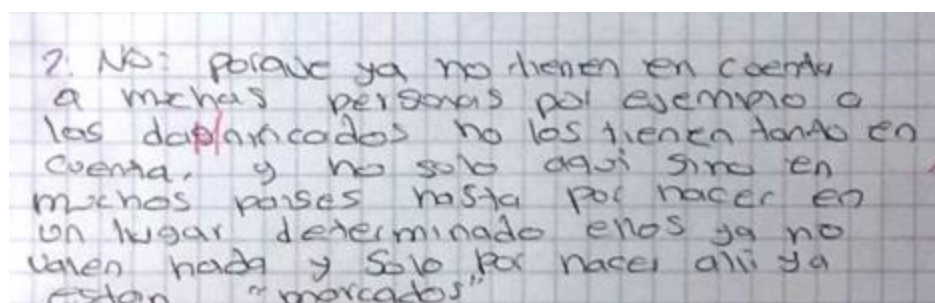 2. No: porque ya no tienen en cuenta
a muchas personas por ejemplo a
los damnificados no los tienen tanto en
cuenta, y no solo aqui sino en
muchos paises hasta por nacer en
un lugar determinado ellos ya no
valen nada y solo por nacer alli ya
estan "marcados"